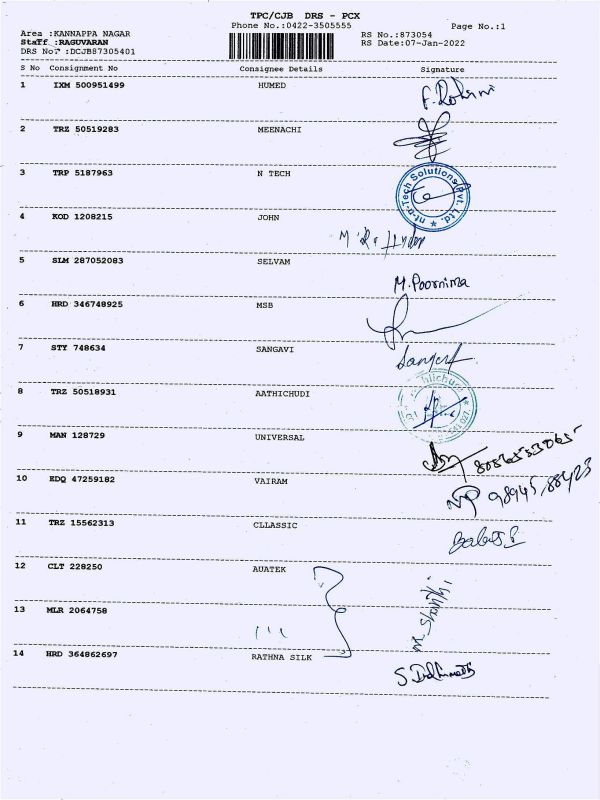 TPC/CJB DRS - PCX
Phone No.:0422-3505555 Page No.:1
Area :KANNAPPA NAGAR RS No.:873054
Staff :RAGUVARAN RS Date:07-Jan-2022
DRS No? :DCJB87305401
S No Consignment No Consignee Details Signature
1 IXM 500951499 HUMED
2 TRZ 50519283 MEENACHI
3 TRP 5187963 N TECH
nt-n-Tech Solutions Pvt. Ltd.
4 KOD 1208215 JOHN
5 SLM 287052083 SELVAM
M.Poornima
6 HRD 346748925 MSB
7 STY 748634 SANGAVI
8 TRZ 50518931 AATHICHUDI
9 MAN 128729 UNIVERSAL
10 EDQ 47259182 VAIRAM
11 TRZ 15562313 CLLASSIC
12 CLT 228250 AUATEK
13 MLR 2064758
14 HRD 364862697 RATHNA SILK